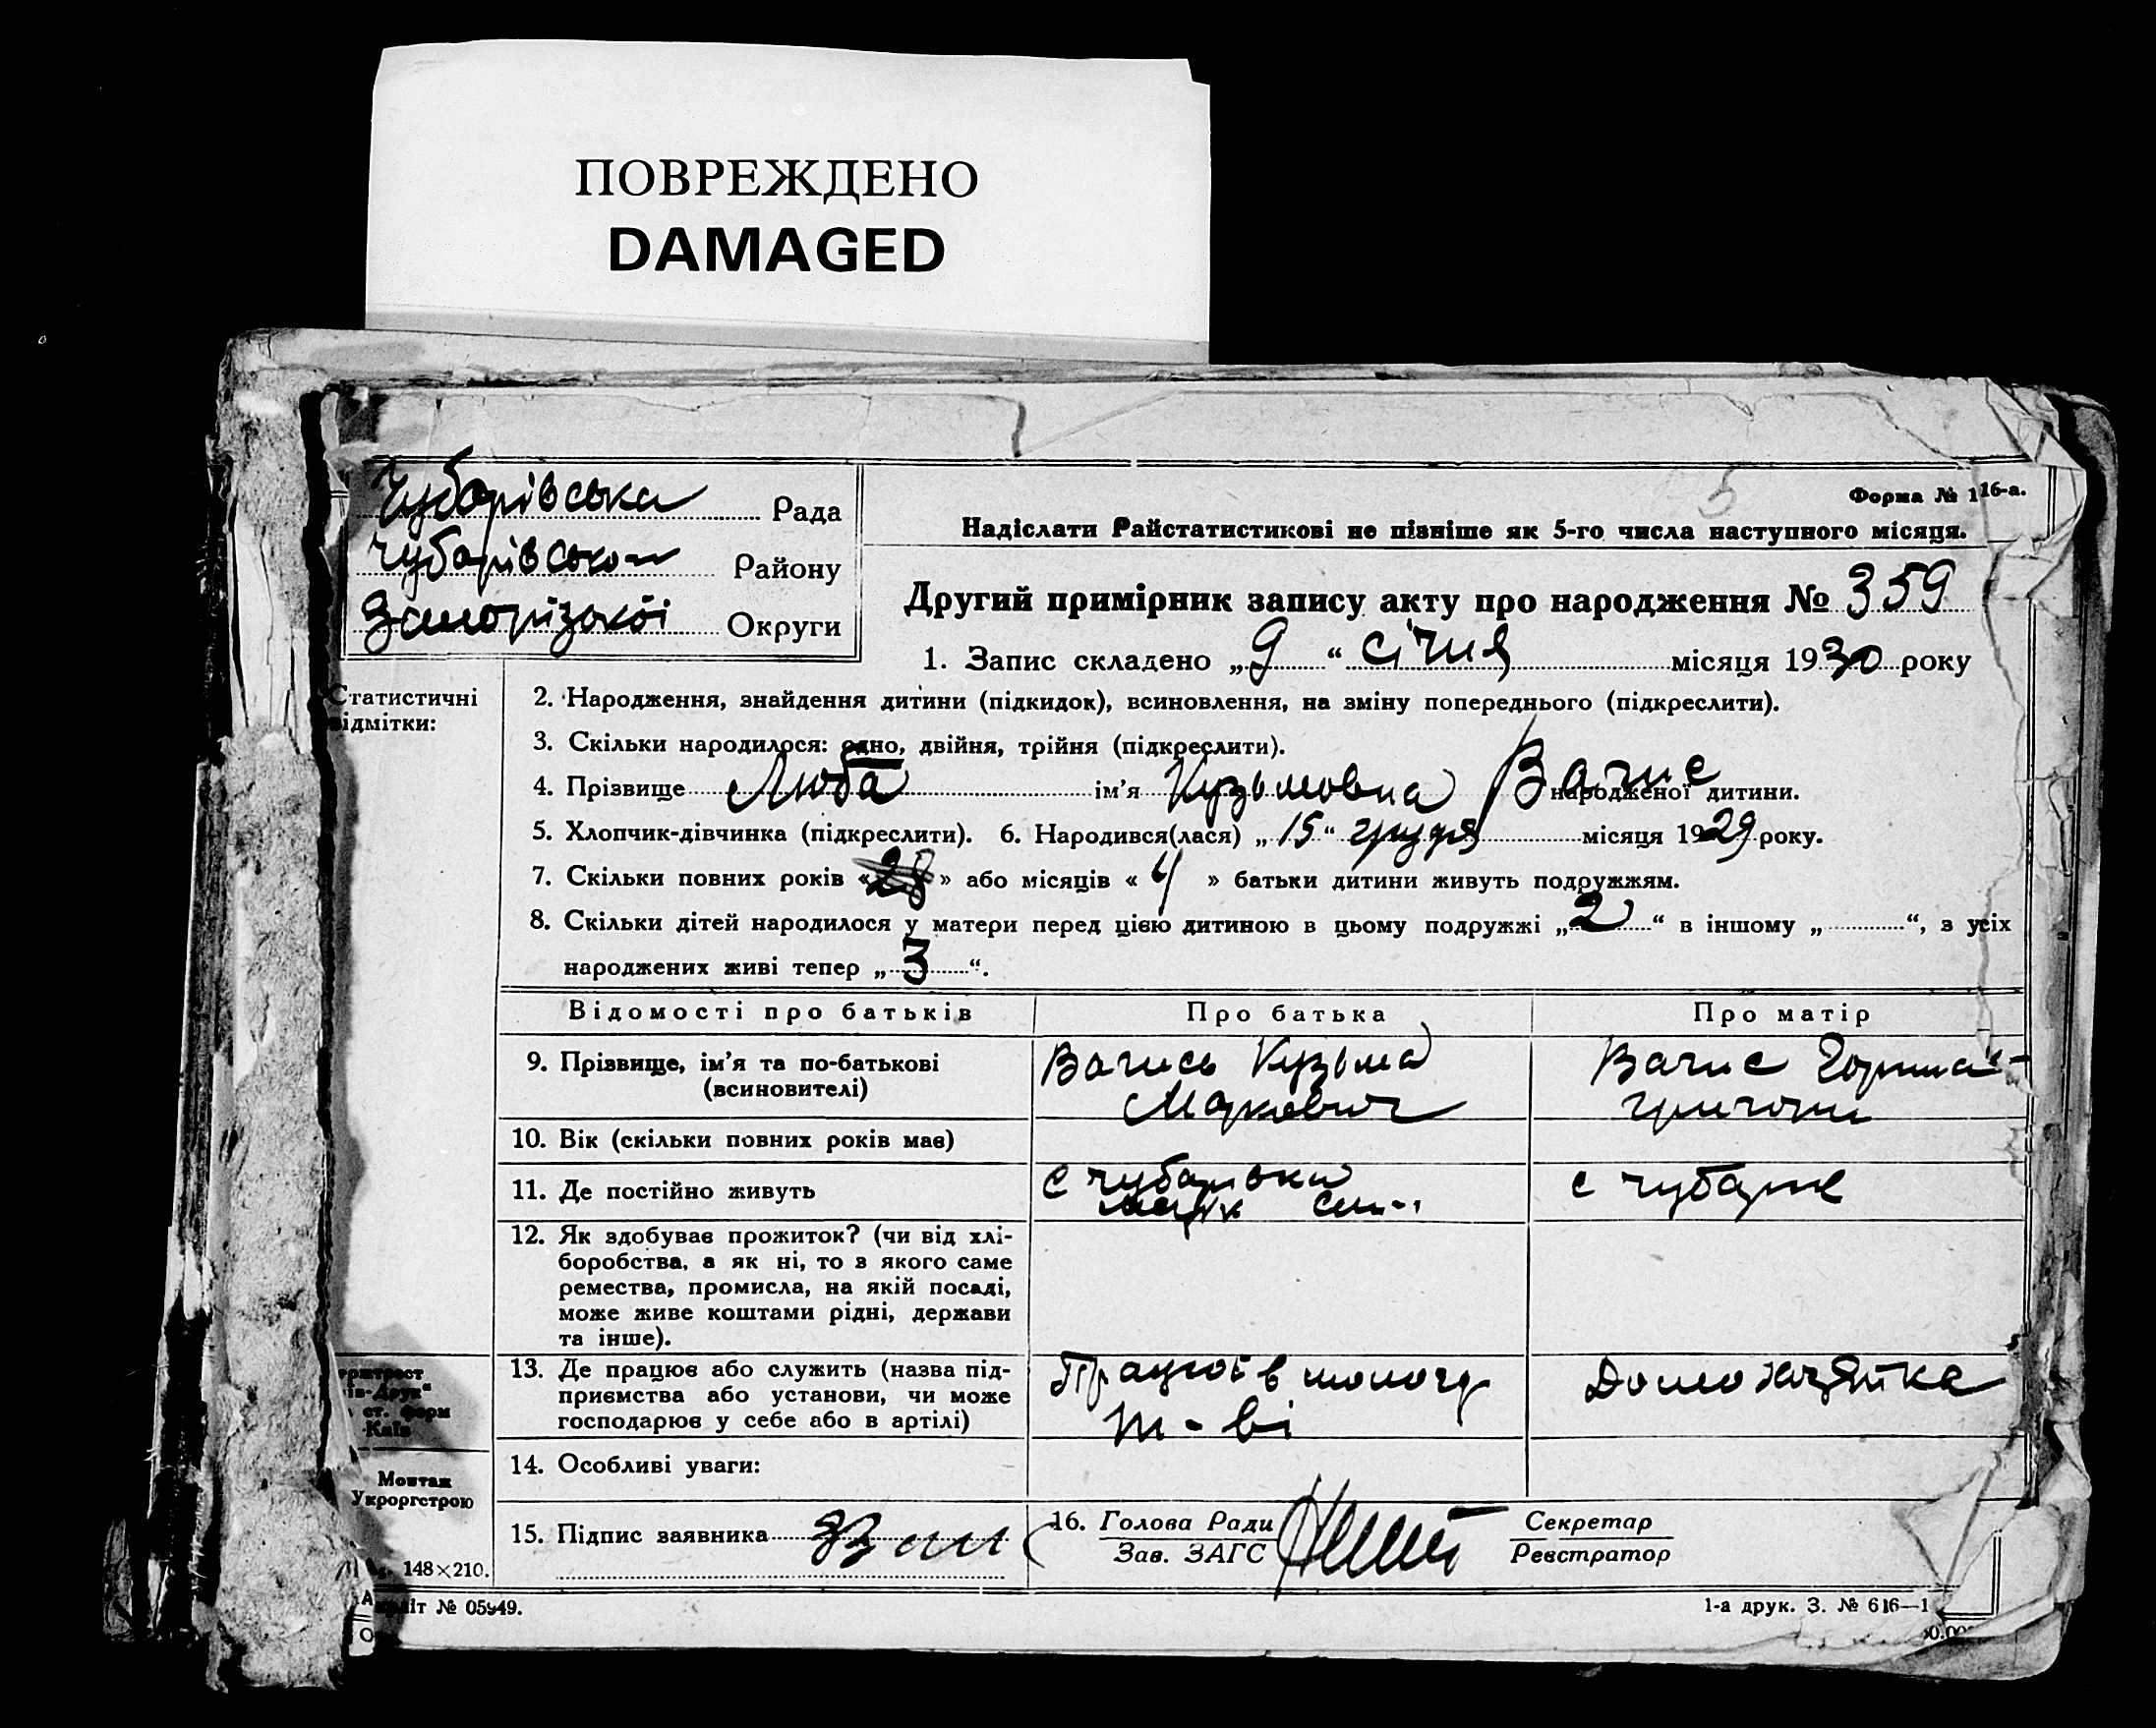 ПОВРЕЖДЕНО
DAMAGED
Чубарівська Рада
Чубарівсько Району
Запорізької Округи
5
Форма № 116-а.
Надіслати Райстатистикові не пізніше як 5-го числа наступного місяця.
Другий примірник запису акту про народження № 359
1. Запис складено „9“ січня місяця 1930 року
Статистичні
відмітки:
2. Народження, знайдення дитини (підкидок), всиновлення, на зміну попереднього (підкреслити).
3. Скільки народилося: одно, двійня, трійня (підкреслити).
4. Прізвище Люба ім’я Кузьмовна Вачис народженої дитини.
5. Хлопчик-дівчинка (підкреслити). 6. Народився(лася) „15“ грудня місяця 1929 року.
7. Скільки повних років «28» або місяців «4» батьки дитини живуть подружжям.
8. Скільки дітей народилося у матери перед цією дитиною в цьому подружжі „2“ в іншому „“, з усіх
народжених живі тепер „3“.
Відомості про батьків
Про батька
Про матір
9. Прізвище, ім’я та по-батькові
(всиновителі)
Вачись Кузьма
Маркович
Вачис
10. Вік (скільки повних років має)
11. Де постійно живуть
с Чубарівка
с Чубарів
12. Як здобуває прожиток? (чи від хлі-
боробства, а як ні, то з якого саме
ремества, промисла, на якій посаді,
може живе коштами рідні, держави
та інше).
13. Де працює або служить (назва під-
приємства або установи, чи може
господарює у себе або в артілі)
Працює в молоч
т-ві
Домохазяйка
14. Особливі уваги:
15. Підпис заявника
16. Голова Ради
Зав. ЗАГС
Секретар
Реєстратор
Київ
Монтаж
Укроргстрою
148×210.
№ 05949.
1-а друк. З. № 616—1